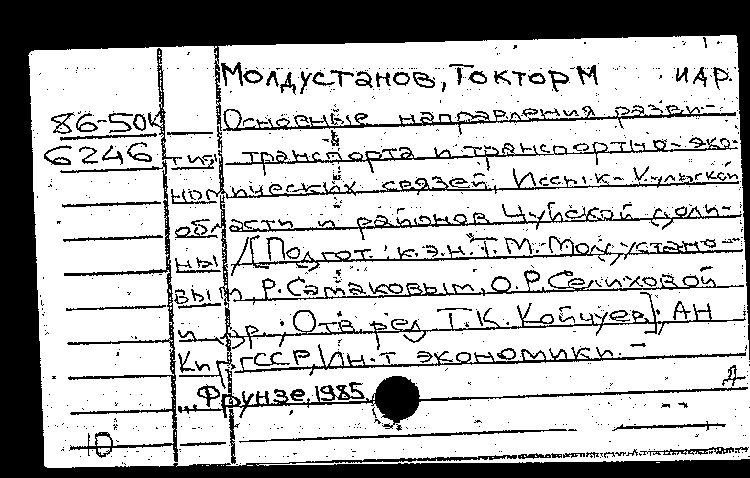 Молдустанов, Токтор М и др.
86-50К Основные направления разви-
6246 тия транспорта и транспортно-эко-
номических связей, Иссык-Кульской
области и районов Чуйской доли-
ны / [Подгот.: к.э.н. Т.М. Молдустано-
вым, Р. Сатаковым, О.Р. Селиховой
и др.; Отв. ред. Т.К. Койчуев]; АН
КиргССР, Ин-т экономики. -
Фрунзе, 1985
Д
10